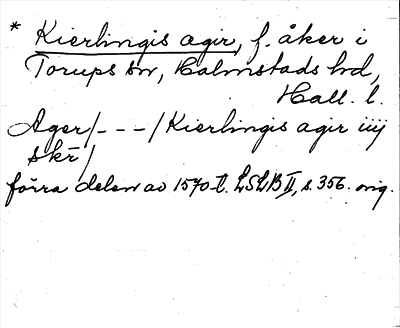 * Kierlingis agir, f. åker i
Torups sn, Halmstads hd,
Hall. l.
Ager/---/Kierlingis agir iiij
skr̄/
förra delen av 1570-t. LSLB II, s. 356. orig.